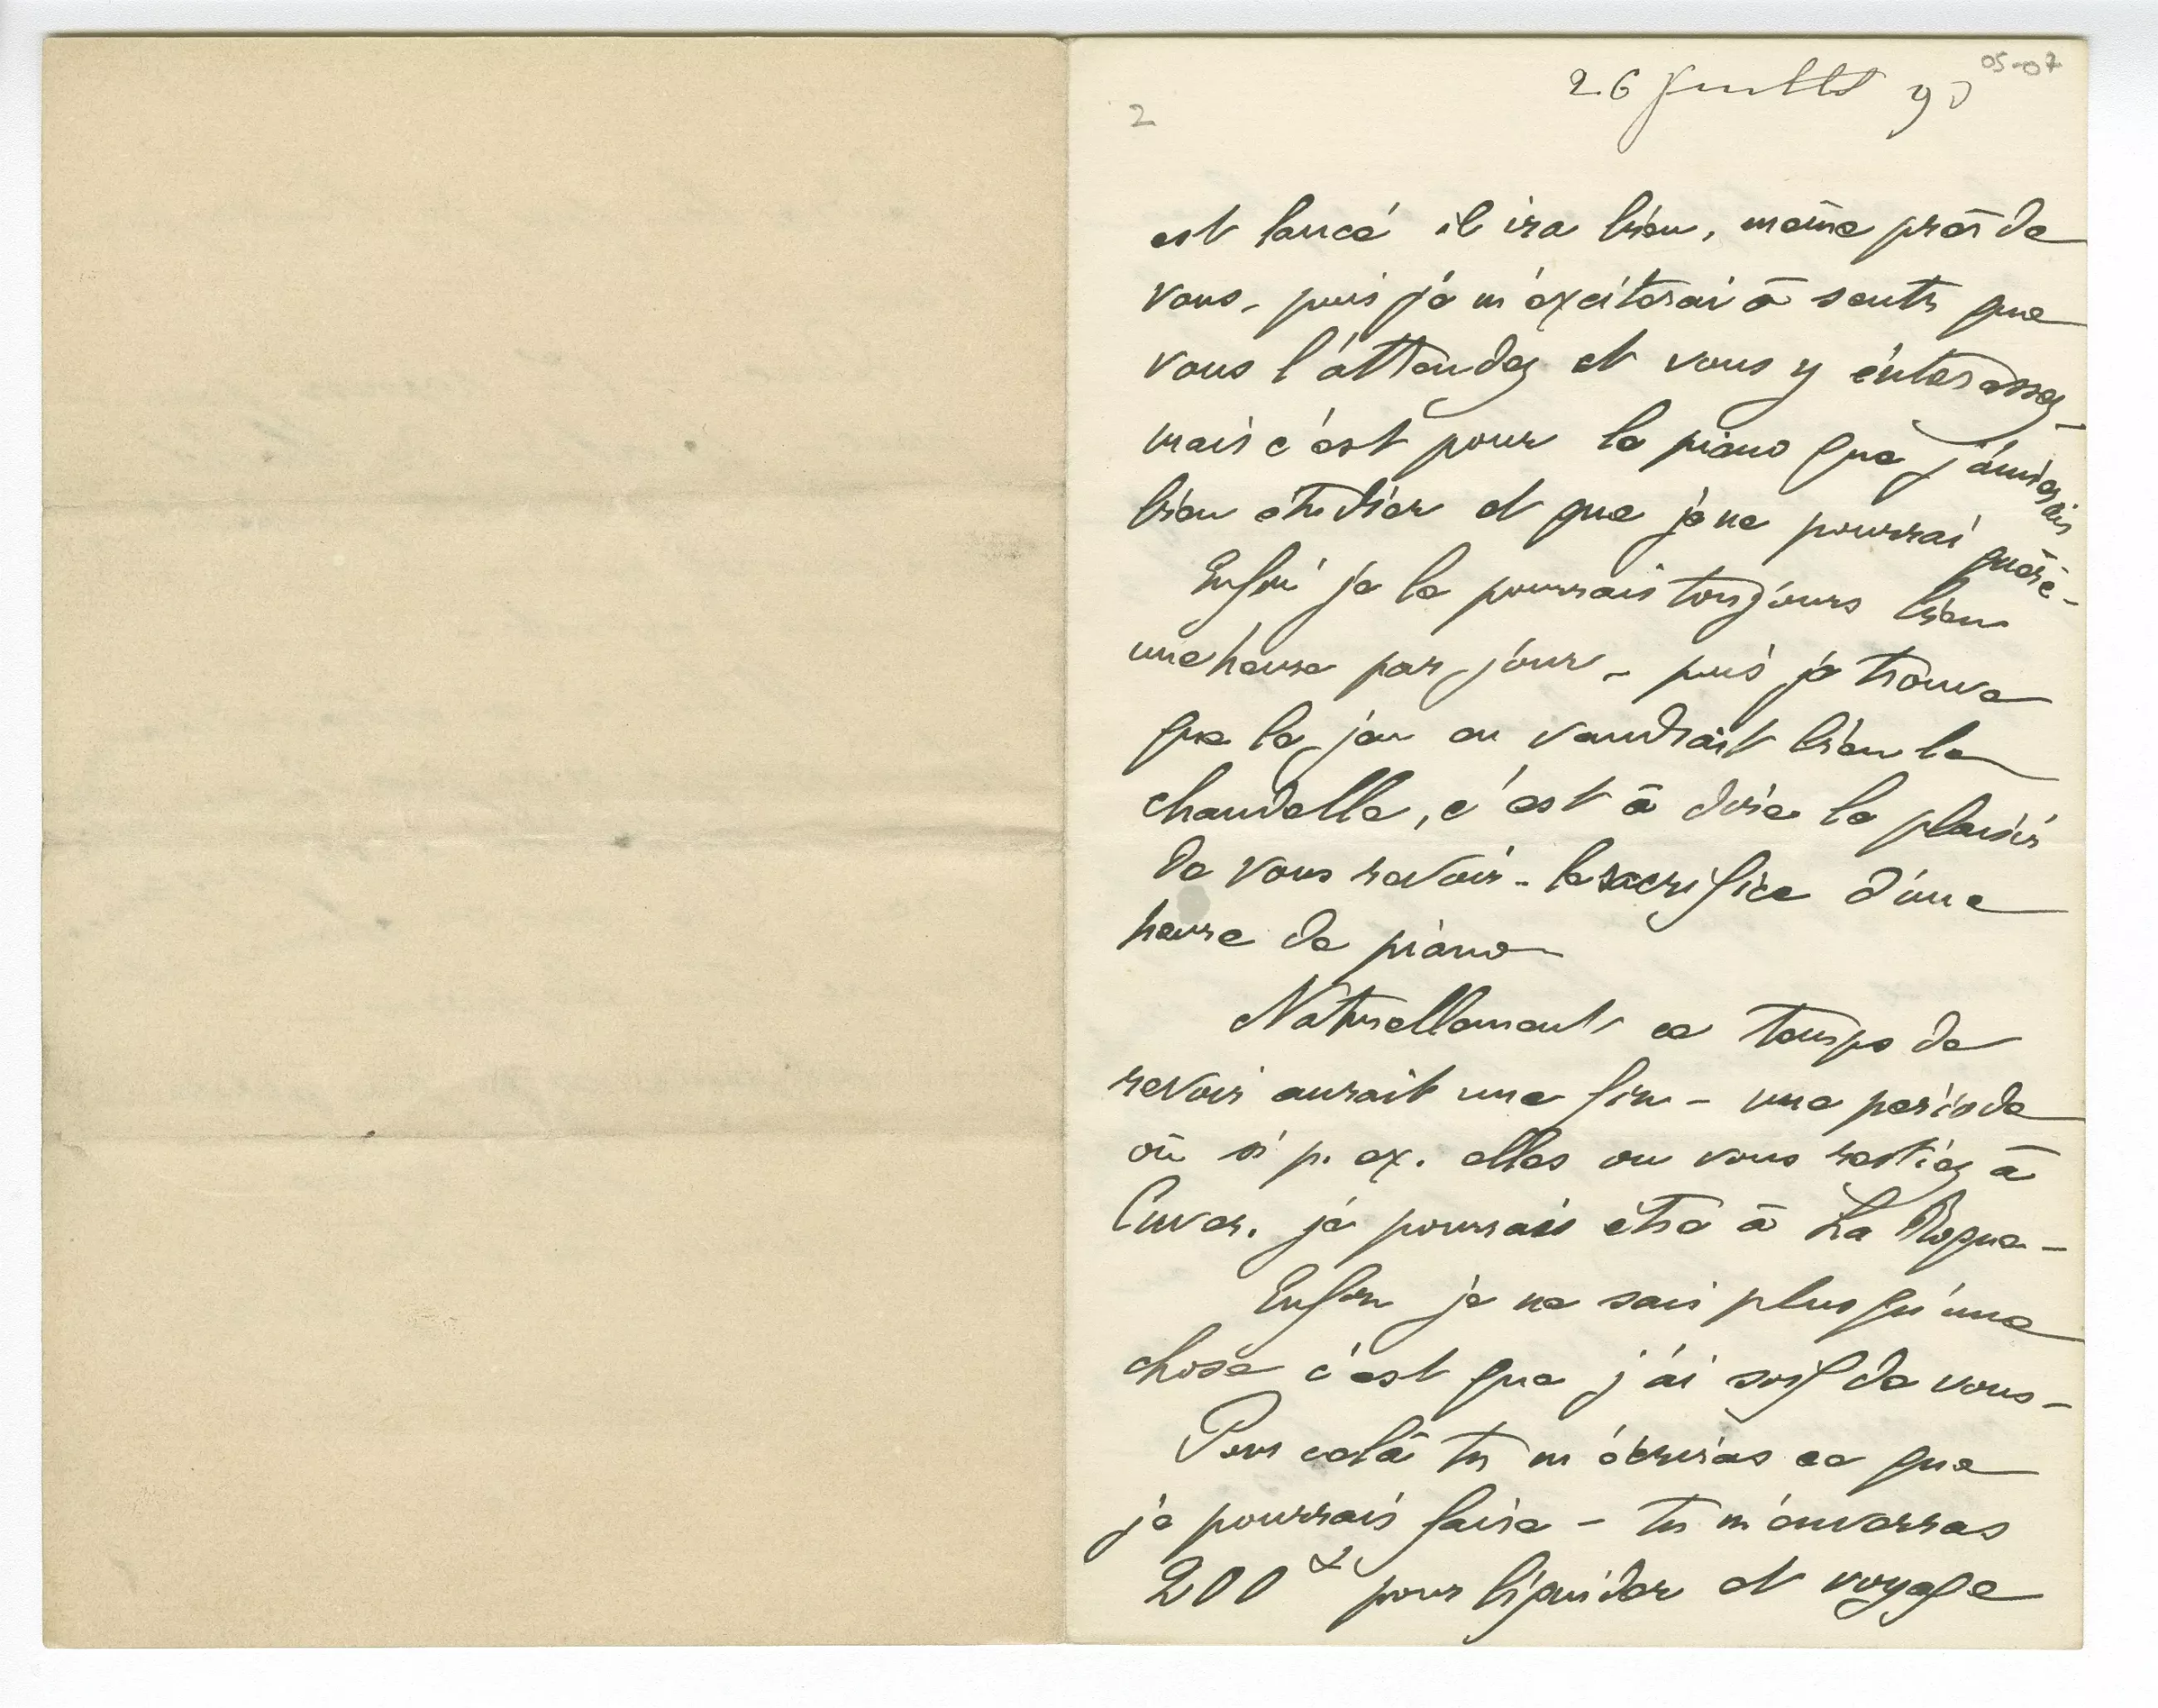 05-07
26 Juillet 90
2
est lancé il ira bien, même près de
vous - puis je m'exciterai à sentir que
vous l'attendez et vous y intéressez -
mais c'est pour le piano que j'aimerais
bien étudier et que je ne pourrai guère -
Enfin je le pourrais toujours bien
une heure par jour - puis je trouve
que le jeu en vaudrait bien la
chandelle, c'est à dire le plaisir
de vous revoir - le sacrifice d'une
heure de piano
Naturellement ce temps de
revoir aurait une fin - une période
où si p. ex. elles ou vous restiez à
Cuver. je pourrais être à La Roque -
Enfin je ne sais plus qu'une
chose c'est que j'ai soif de vous -
Pour cela tu m'écriras ce que
je pourrais faire - tu m'enverras
200 pour liquider et voyage